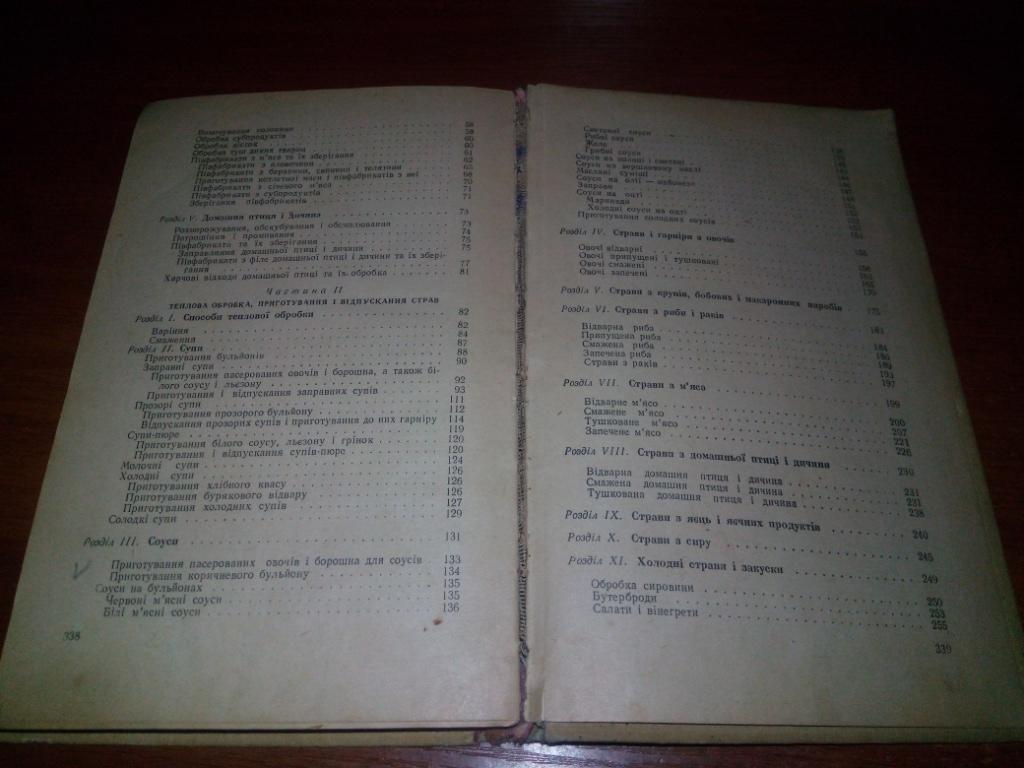 Вимочування солонини 58
Обробка субпродуктів 58
Обробка кісток 60
Обробка туш диких тварин 60
Півфабрикати з м'яса та їх зберігання 61
Півфабрикати з яловичини 62
Півфабрикати з баранини, свинини і телятини 65
Приготування котлетної маси і півфабрикатів з неї 68
Півфабрикати з січеного м'яса 70
Півфабрикати з субпродуктів 71
Зберігання півфабрикатів 71
Розділ V. Домашня птиця і дичина 73
Розморожування, обскубування і обсмалювання 73
Патрошіння і промивання 74
Півфабрикати та їх зберігання 75
Заправляння домашньої птиці і дичини 75
Півфабрикати з філе домашньої птиці і дичини та їх збері-
гання 77
Харчові відходи домашньої птиці та їх обробка 81
Частина II
ТЕПЛОВА ОБРОБКА, ПРИГОТУВАННЯ І ВІДПУСКАННЯ СТРАВ
Розділ I. Способи теплової обробки 82
Варіння 82
Смаження 84
Розділ II. Супи 87
Приготування бульйонів 88
Заправні супи 90
Приготування пасерованих овочів і борошна, а також бі-
лого соусу і льєзону 92
Приготування і відпускання заправних супів 93
Прозорі супи 111
Приготування прозорого бульйону 112
Відпускання прозорих супів і приготування до них гарніру 114
Супи-пюре 119
Приготування білого соусу, льєзону і грінок 120
Приготування і відпускання супів-пюре 120
Молочні супи 124
Холодні супи 126
Приготування хлібного квасу 126
Приготування бурякового відвару 126
Приготування холодних супів 127
Солодкі супи 129
Розділ III. Соуси 131
Приготування пасерованих овочів і борошна для соусів 133
Приготування коричневого бульйону 134
Соуси на бульйонах 135
Червоні м'ясні соуси 135
Білі м'ясні соуси 136
338
Сметанні соуси
Рибні соуси
Желе
Грибні соуси
Соуси на молоці і сметані
Соуси на вершковому маслі
Масляні суміші
Соуси на олії — майонез
Заправи
Соуси на оцті
Маринади
Холодні соуси на оцті
Приготування холодних соусів
Розділ IV. Страви і гарніри з овочів
Овочі відварні
Овочі припущені і тушковані
Овочі смажені
Овочі запечені
Розділ V. Страви з крупів, бобових і макаронних виробів 175
Розділ VI. Страви з риби і раків 181
Відварна риба
Припущена риба 184
Смажена риба 186
Запечена риба 189
Страви з раків 193
Розділ VII. Страви з м'яса 197
Відварне м'ясо 199
Смажене м'ясо 200
Тушковане м'ясо 207
Запечене м'ясо 221
Розділ VIII. Страви з домашньої птиці і дичини 226
Відварна домашня птиця і дичина 230
Смажена домашня птиця і дичина 231
Тушкована домашня птиця і дичина 231
Розділ IX. Страви з яєць і яєчних продуктів 240
Розділ X. Страви з сиру 245
Розділ XI. Холодні страви і закуски 249
Обробка сировини 250
Бутерброди 253
Салати і вінегрети 255
339